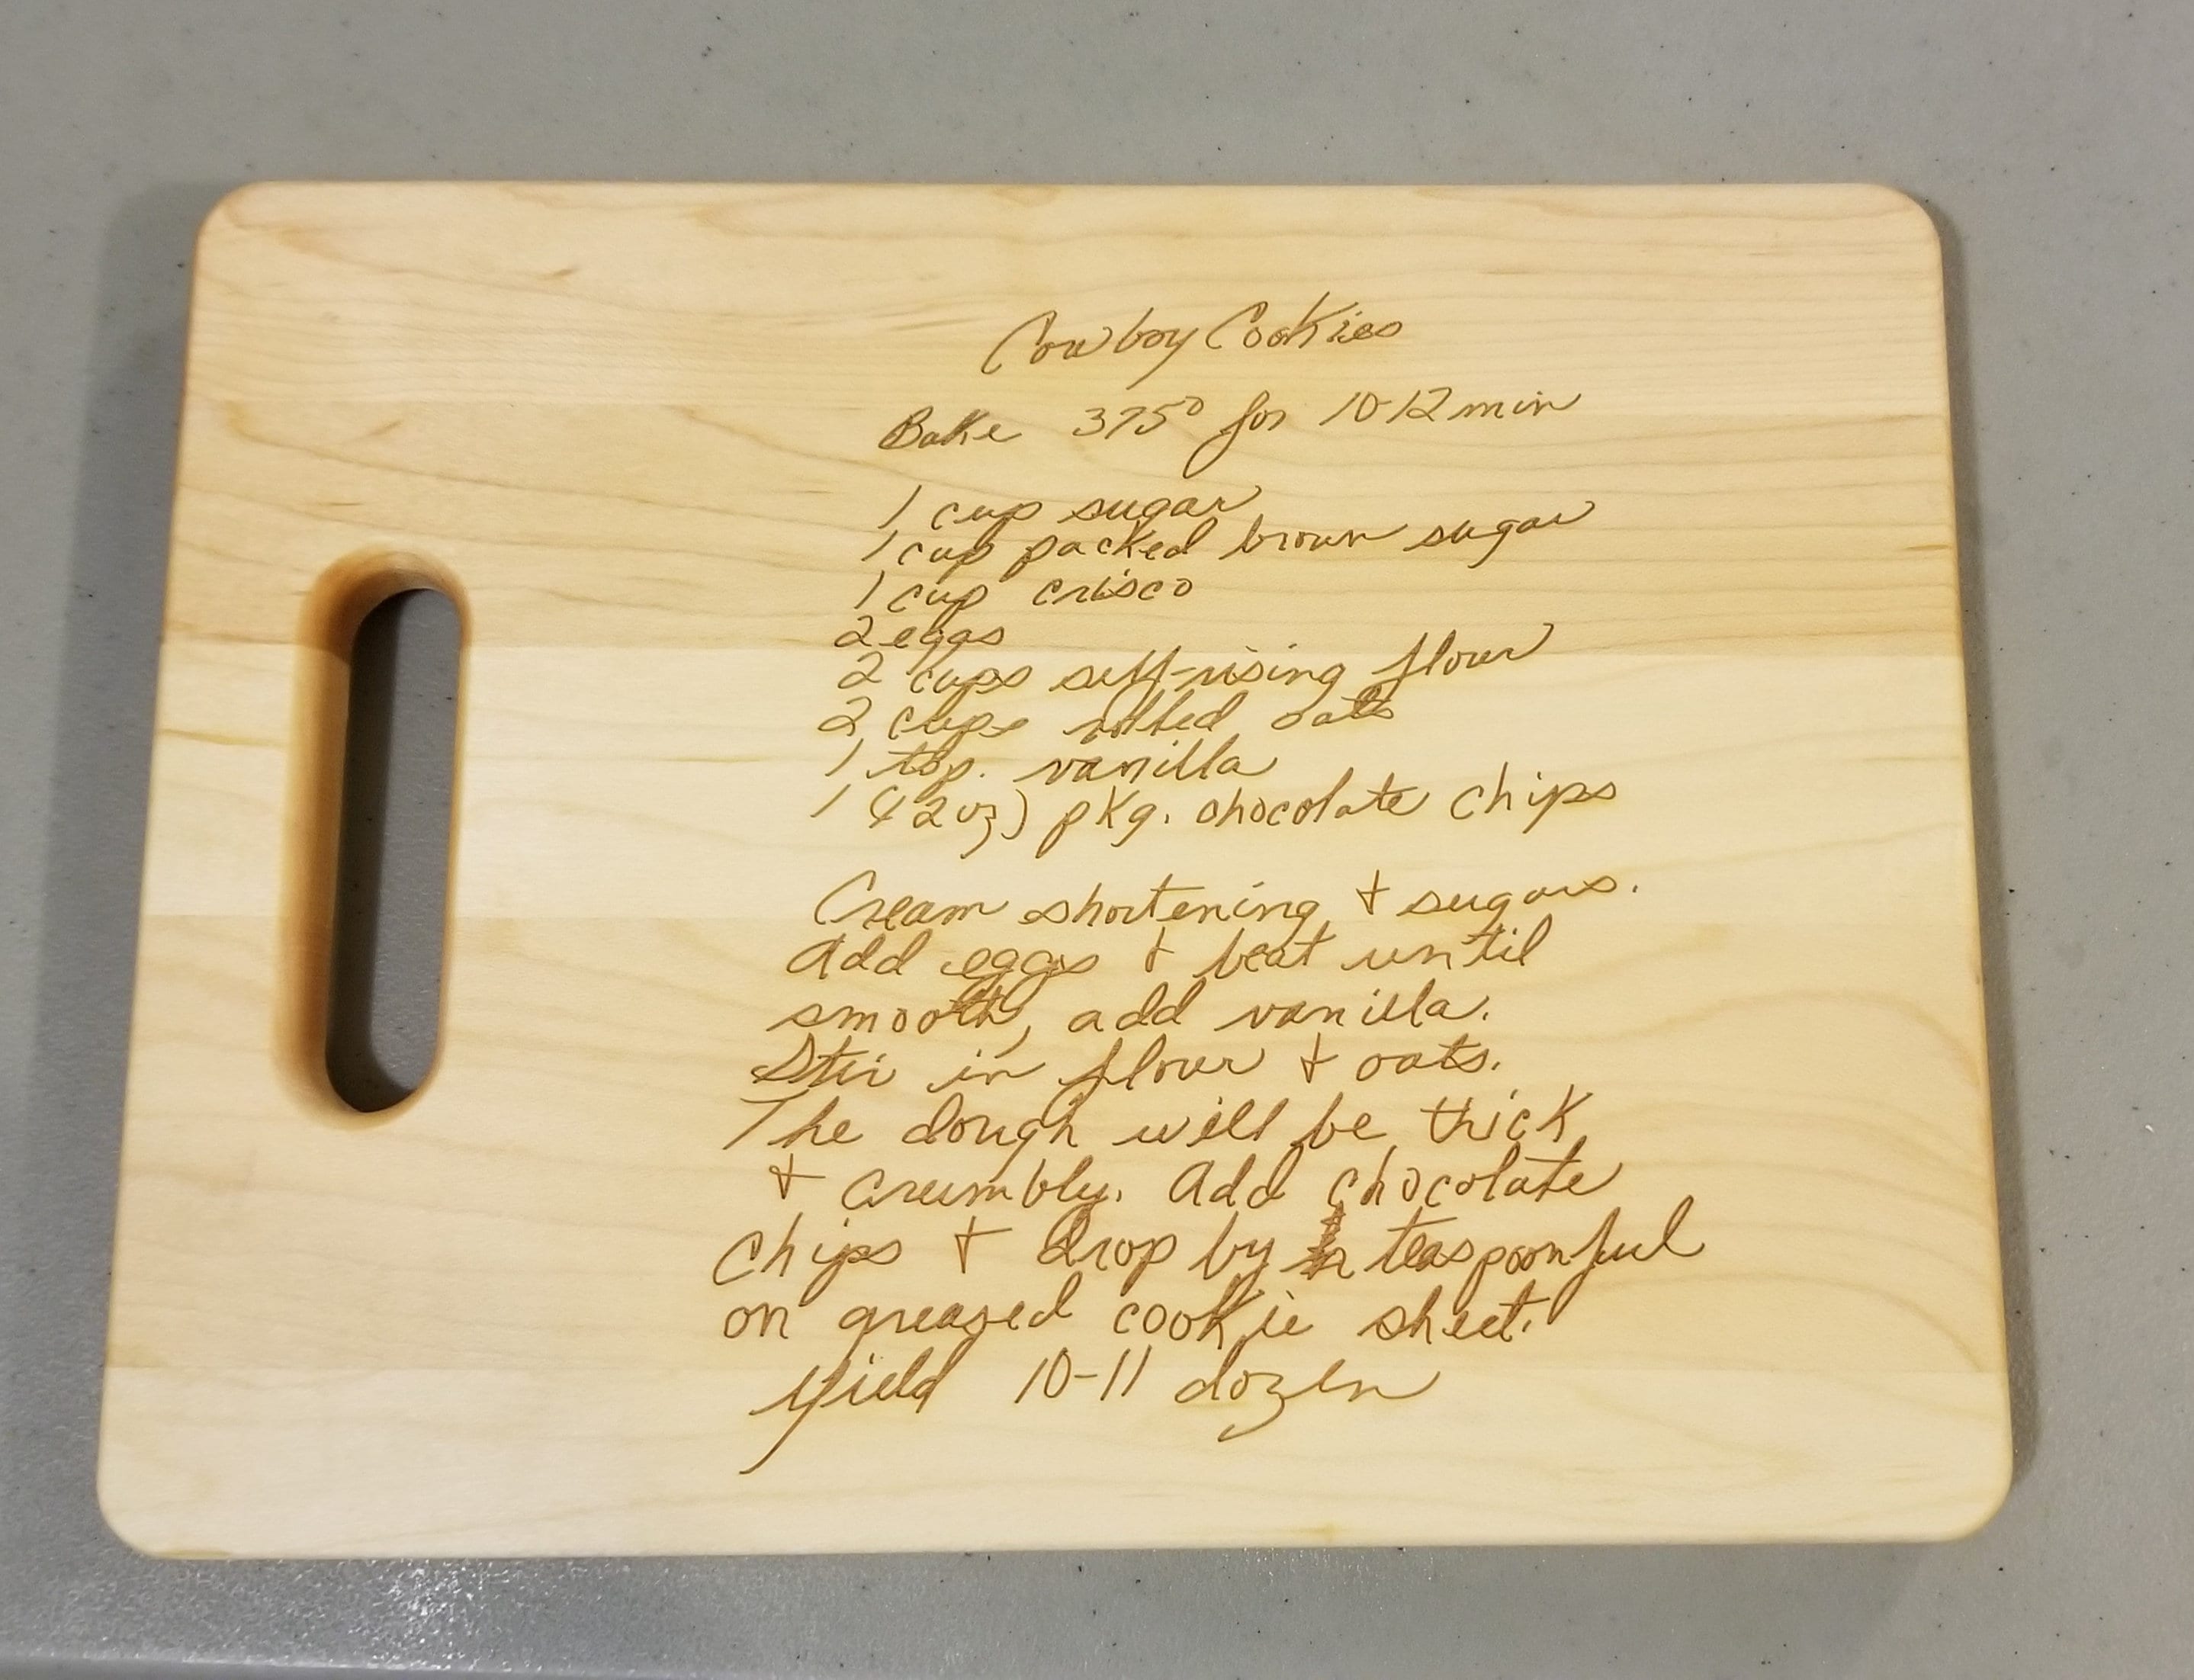 Cowboy Cookies
Bake 375° for 10-12 min
1 cup sugar
1 cup packed brown sugar
1 cup crisco
2 eggs
2 cups self-rising flour
2 cups rolled oats
1 tsp. vanilla
1 (12oz) pkg. chocolate chips
Cream shortening & sugars.
Add eggs & beat until
smooth, add vanilla.
Stir in flour & oats.
The dough will be thick
& crumbly. Add chocolate
chips & drop by teaspoonful
on greased cookie sheet.
Yield 10-11 dozen